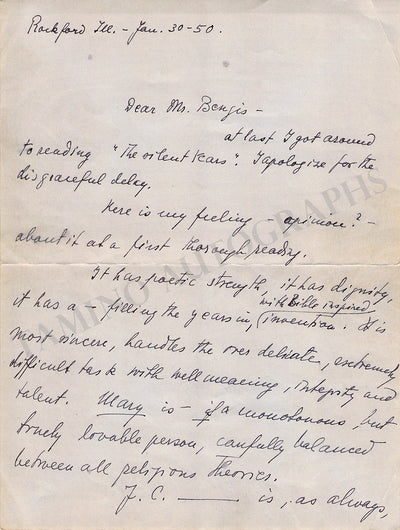 Rockford Ill. - Jan. 30-50.
Dear Mr. Bengis -
at last I got around
to reading "The silent Years". I apologize for the
disgraceful delay.
Here is my feeling - opinion? -
about it at a first thorough reading.
It has poetic strength, it has dignity,
it has a - filling the years in, (with Bible inspired
invention. It is
most sincere, handles the over delicate, extremely
difficult task with well meaning, integrity and
talent. Mary is - if a monotonous, but
truely lovable person, carefully balanced
between all religious theories.
J. C. ——— is, as always,
TAMINO AUTOGRAPHS